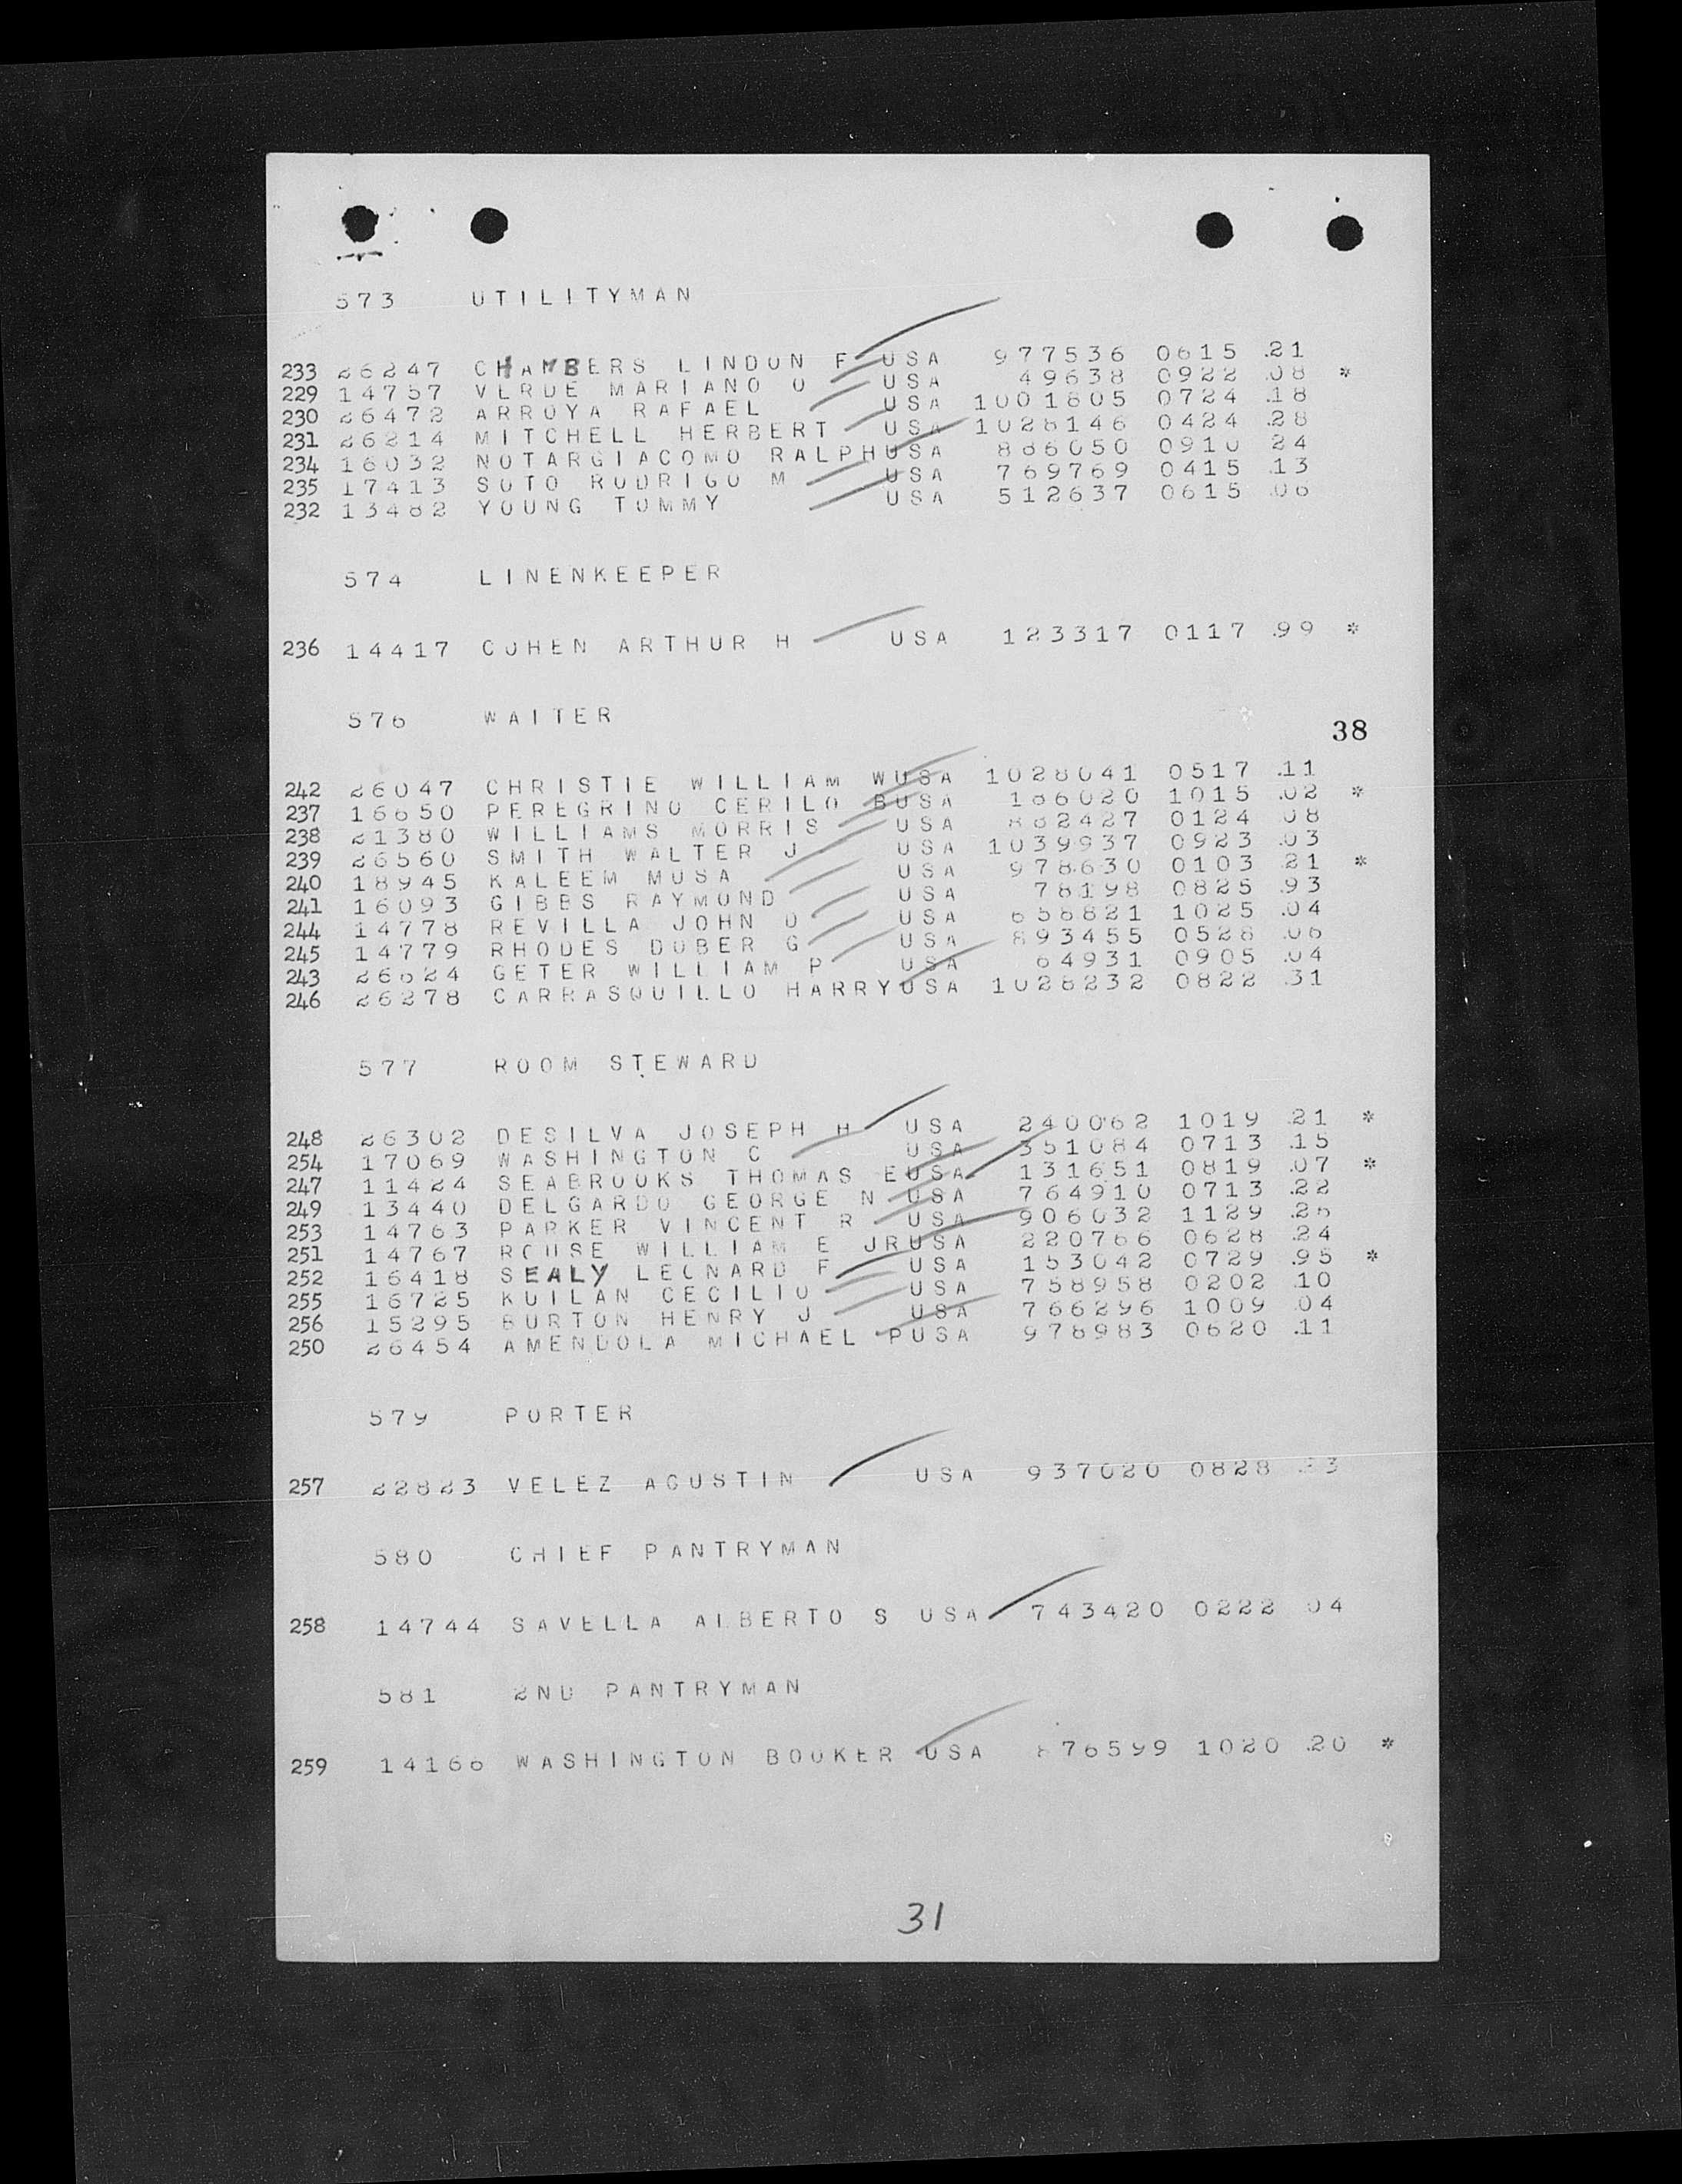 573 UTILITYMAN
233 26247 CHAMBERS LINDON F USA 977536 0615 .21
229 14757 VERDE MARIANO O USA 49638 0922 .08 *
230 26472 ARROYA RAFAEL USA 1001805 0724 .18
231 26214 MITCHELL HERBERT USA 1028146 0424 .28
234 16032 NOTARGIACOMO RALPH USA 886050 0910 24
235 17413 SOTO RODRIGO M USA 769769 0415 .13
232 13482 YOUNG TOMMY USA 512637 0615 .06
574 LINENKEEPER
236 14417 COHEN ARTHUR H USA 123317 0117 .99 *
576 WAITER
38
242 26047 CHRISTIE WILLIAM W USA 1028041 0517 .11
237 16650 PEREGRINO CERILO B USA 186020 1015 .02 *
238 21380 WILLIAMS MORRIS USA 882427 0124 .08
239 26560 SMITH WALTER J USA 1039937 0923 .03
240 18945 KALEEM MUSA USA 978630 0103 .21 *
241 16093 GIBBS RAYMOND USA 78198 0825 .93
244 14778 REVILLA JOHN O USA 658821 1025 .04
245 14779 RHODES DOBER G USA 893455 0528 .06
243 26624 GETER WILLIAM P USA 64931 0905 .04
246 26278 CARRASQUILLO HARRY USA 1028232 0822 .31
577 ROOM STEWARD
248 26302 DESILVA JOSEPH H USA 240062 1019 .21 *
254 17069 WASHINGTON C USA 351084 0713 .15
247 11424 SEABROOKS THOMAS E USA 131651 0819 .07 *
249 13440 DELGARDO GEORGE N USA 764910 0713 .22
253 14763 PARKER VINCENT R USA 906032 1129 .26
251 14767 ROUSE WILLIAM E JR USA 220766 0628 .24
252 16418 SEALY LEONARD F USA 153042 0729 .95 *
255 16725 KUILAN CECILIO USA 758958 0202 .10
256 15295 BURTON HENRY J USA 766296 1009 .04
250 26454 AMENDOLA MICHAEL P USA 978983 0620 .11
579 PORTER
257 22823 VELEZ AGUSTIN USA 937020 0828
580 CHIEF PANTRYMAN
258 14744 SAVELLA ALBERTO S USA 743420 0222 04
581 2ND PANTRYMAN
259 14166 WASHINGTON BOOKER USA 876599 1020 .20 *
31